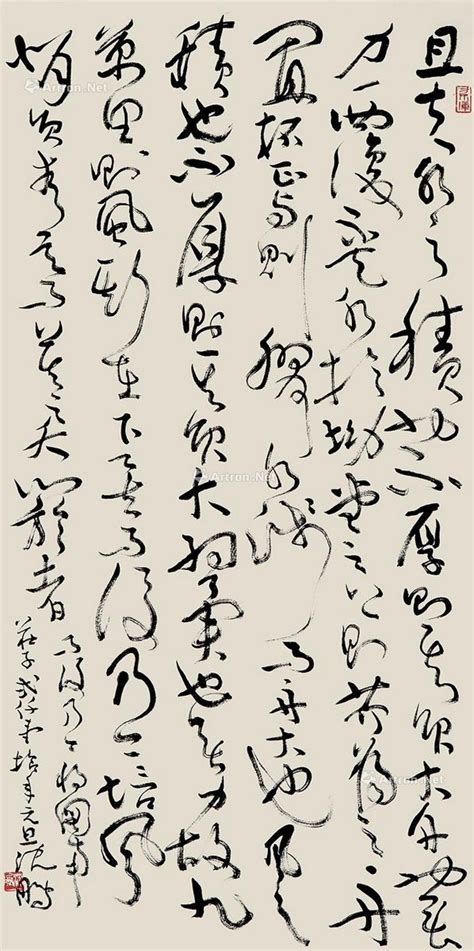 且夫水之積也不厚則其負大舟也無
力覆杯水於坳堂之上則芥為之舟
置杯焉則膠水淺而舟大也風之
積也不厚則其負大翼也無力故九
萬里則風斯在下矣而後乃今培風
背負青天而莫之夭閼者
而後乃今將圖南
莊子 元旦沈鵬
Artron.Net